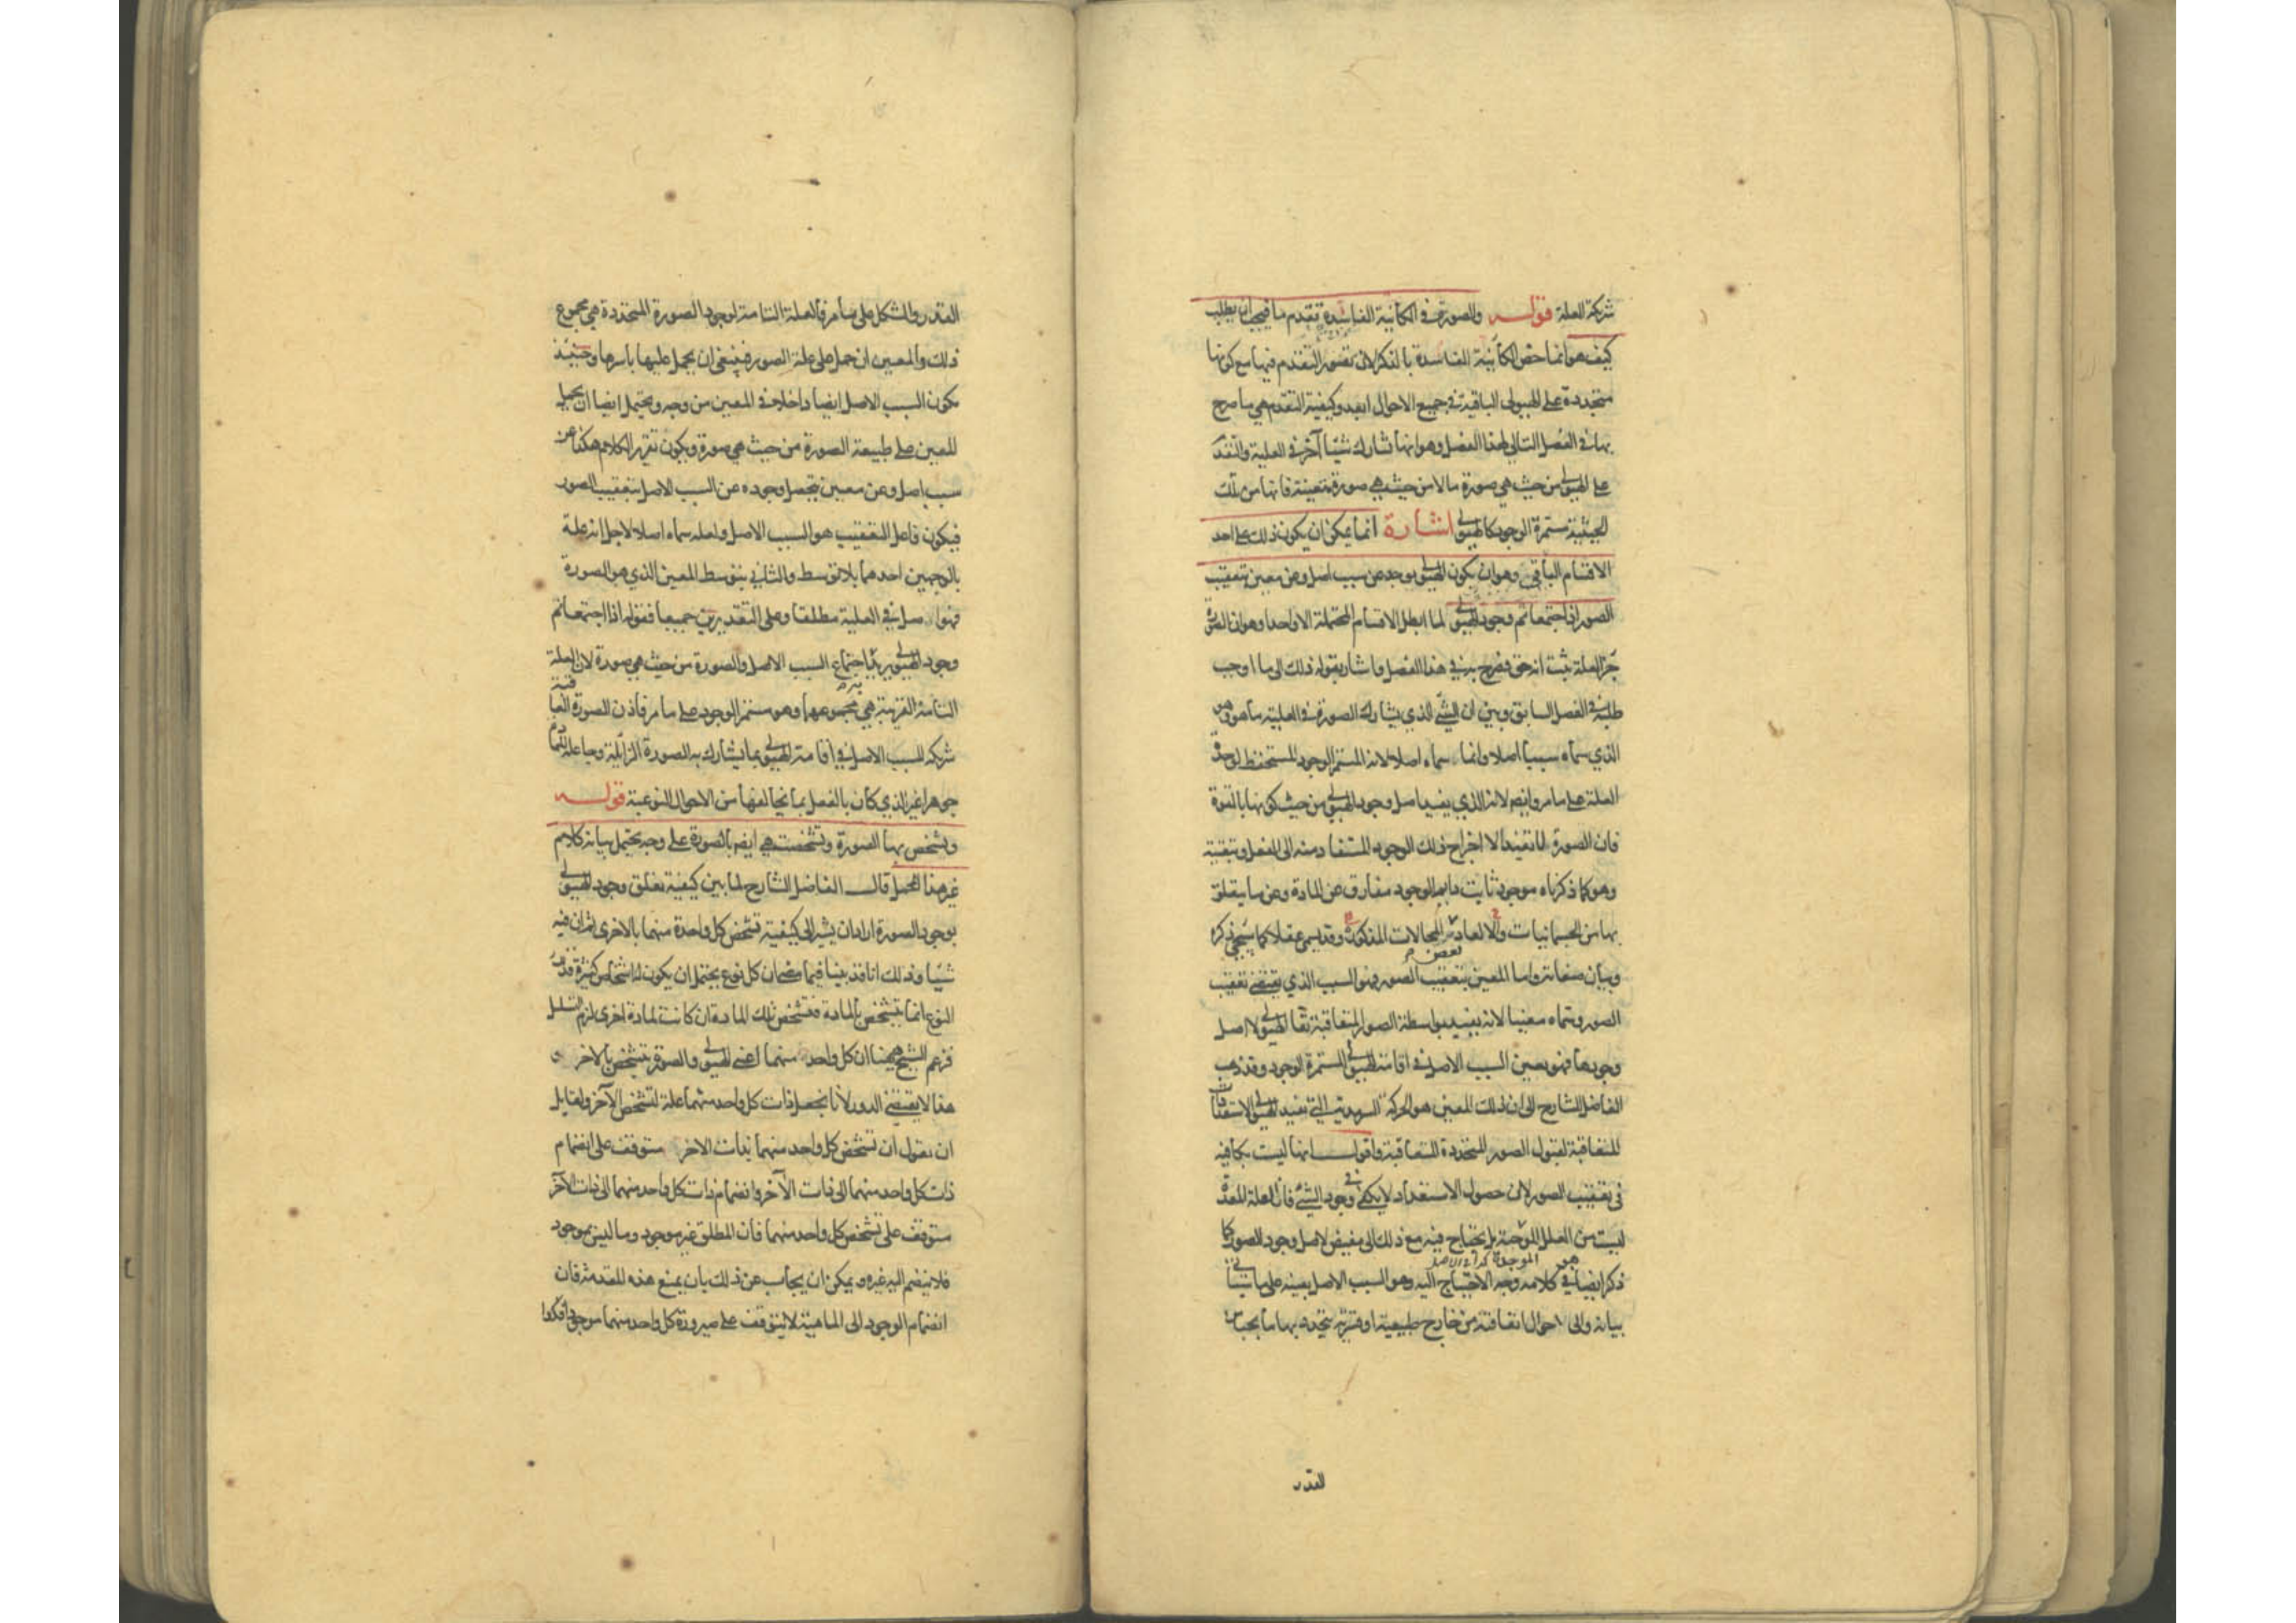 شركة العلة قوله وللصورة في الكائنة الفاسدة تقدم ما فيجب ان يطلب
كيف هو انما خص الكائنة الفاسدة بالذكر لان تصور التقدم فيها مع كونها
متجددة على الهيولى الباقية في جميع الاحوال ابعد وكيفية التقدم هي ما صرح
بها في الفصل التالي لهذا الفصل وهو انها تشارك شيئا آخر في العلية والتقدم
على الهيولى من حيث هي صورة ما لا من حيث هي صورة متعينة فانها من تلك
الحيثية مستمرة الوجود كالهيولى اشارة انما يمكن ان يكون ذلك على احد
الاقسام الباقي وهو ان يكون الهيولى يوجد عن سبب اصل وعن معين بتعقيب
الصور اذا اجتمعا تم وجود الهيولى لما ابطل الاقسام المحتملة الا واحدا وهو ان الصورة
جزء العلة ثبت انه حق فصرح به في هذا الفصل واشار بقوله ذلك الى ما اوجب
طلبه في الفصل السابق وبين ان الشئ الذي يشارك الصورة في العلية ما هو وهو
الذي سماه سببا اصلا وانما سماه اصلا لانه المستمر الوجود المستحفظ لوحدة
العلة على ما مر وايضا لانه الذي يفيد اصل وجود الهيولى من حيث كونها بالقوة
فان الصورة انما تفيد الا اخراج ذلك الوجود المستفاد منه الى الفعل وتبقيته
وهو كما ذكرناه موجود ثابت دايم الوجود مفارق عن المادة وعن ما يتعلق
بها من الجسمانيات والا لعادت المحالات المذكورة وقد يسمى عقلا كما سيجئ ذكره
وبيان صفاته واما المعين بتعقيب الصور فهو السبب الذي يقتضي تعقيب
الصور وسماه معينا لانه يفيد بواسطة الصور المتعاقبة بقاء الهيولى لا اصل
وجودها فهو يعين السبب الاصل في اقامة الهيولى المستمرة الوجود وقد ذهب
الفاضل الشارح الى ان ذلك المعين هو الحركة السرمدية التي تفيد الهيولى الاستعدادات
المتعاقبة لقبول الصور المتجددة المتعاقبة واقول انها ليست بكافية
في تعقيب الصور لان حصول الاستعداد لا يكفي في وجود الشئ فان العلة المعدة
ليست من العلل الموجبة بل يحتاج فيه مع ذلك الى مفيض لاصل وجود الصور كما
ذكر ايضا في كلامه وجه الاحتياج اليه وهو السبب الاصل بعينه على ما سيأتي
بيانه والى احوال اتفاقية من خارج طبيعية او قسرية يتحدد بها ما يجب من
القدر
القدر والشكل على ما مر فالعلة التامة لوجود الصورة المتجددة هي مجموع
ذلك والمعين ان حمل على علة الصور فينبغي ان يحمل عليها باسرها وحينئذ
يكون السبب الاصل ايضا داخلا في المعين من وجه ويحتمل ايضا ان يحمل
المعين على طبيعة الصورة من حيث هي صورة ويكون تقرير الكلام هكذا عن
سبب اصل وعن معين يحصل وجوده عن السبب الاصل بتعقيب الصور
فيكون فاعل التعقيب هو السبب الاصل ولعله سماه اصلا لاجل انه علة
بالوجهين احدهما بلا توسط والثاني بتوسط المعين الذي هو الصورة
فهو اصل في العلية مطلقا وعلى التقديرين جميعا فقوله اذا اجتمعا تم
وجود الهيولى يريد به اجتماع السبب الاصل والصورة من حيث هي صورة لان العلة
التامة القريبة هي مجموعهما وهو مستمر الوجود على ما مر فاذن الصورة العاقبة
شريكة للسبب الاصل في اقامة الهيولى بما يشارك به الصورة الزايلة وجاعلة
جوهرا غير الذي كان بالفعل بما تخالفها من الاحوال النوعية قوله
وتشخص بها الصورة وتشخصت هي ايضا بالصورة على وجه يحتمل بيانه كلام
غير هذا المجمل قال الفاضل الشارح لما بين كيفية تعلق وجود الهيولى
بوجود الصورة اراد ان يشير الى كيفية تشخص كل واحدة منهما بالاخرى ثم ان فيه
شيئا وذلك انا قد بينا فيما مضى ان كل نوع يحتمل ان يكون له اشخاص كثيرة فذلك
النوع انما يتشخص بالمادة فتشخص تلك المادة ان كانت لمادة اخرى لزم التسلسل
فزعم الشيخ ههنا ان كل واحد منهما اعني الهيولى والصورة يتشخص بالاخر و
هذا لا يقتضي الدور لانا نجعل ذات كل واحد منهما علة لتشخص الآخر ولقايل
ان يقول ان تشخص كل واحد منهما بذات الاخر متوقف على انضمام
ذات كل واحد منهما الى ذات الآخر وانضمام ذات كل واحد منهما الى ذات الآخر
متوقف على تشخص كل واحد منهما فان المطلق غير موجود وما ليس بموجود
فلا ينضم اليه غيره ويمكن ان يجاب عن ذلك بان يمنع هذه المقدمة فان
انضمام الوجود الى الماهية لا يتوقف على صيرورة كل واحد منهما موجودا فكذا